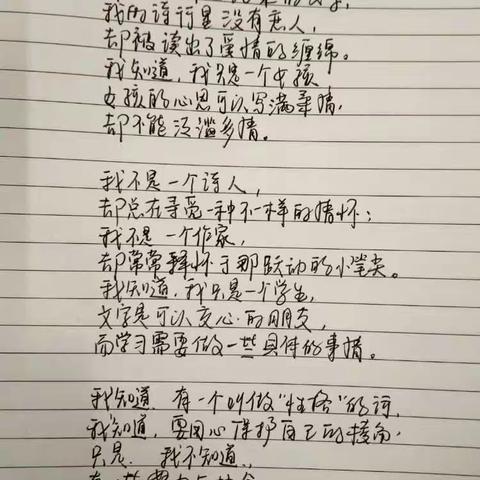 我的诗行里没有恋人,
却被读出了爱情的缠绵。
我知道,我只是一个女孩
女孩的心思可以写满柔情,
却不能泛滥多情。
我不是一个诗人,
却总在寻觅一种不一样的情怀;
我不是一个作家,
却常常释怀于那跃动的小笔尖。
我知道,我只是一个学生,
文字是可以交心的朋友,
而学习需要做一些具体的事情。
我知道,有一个叫做“性格”的词,
我知道,要用心保护自己的棱角,
只是,我不知道,